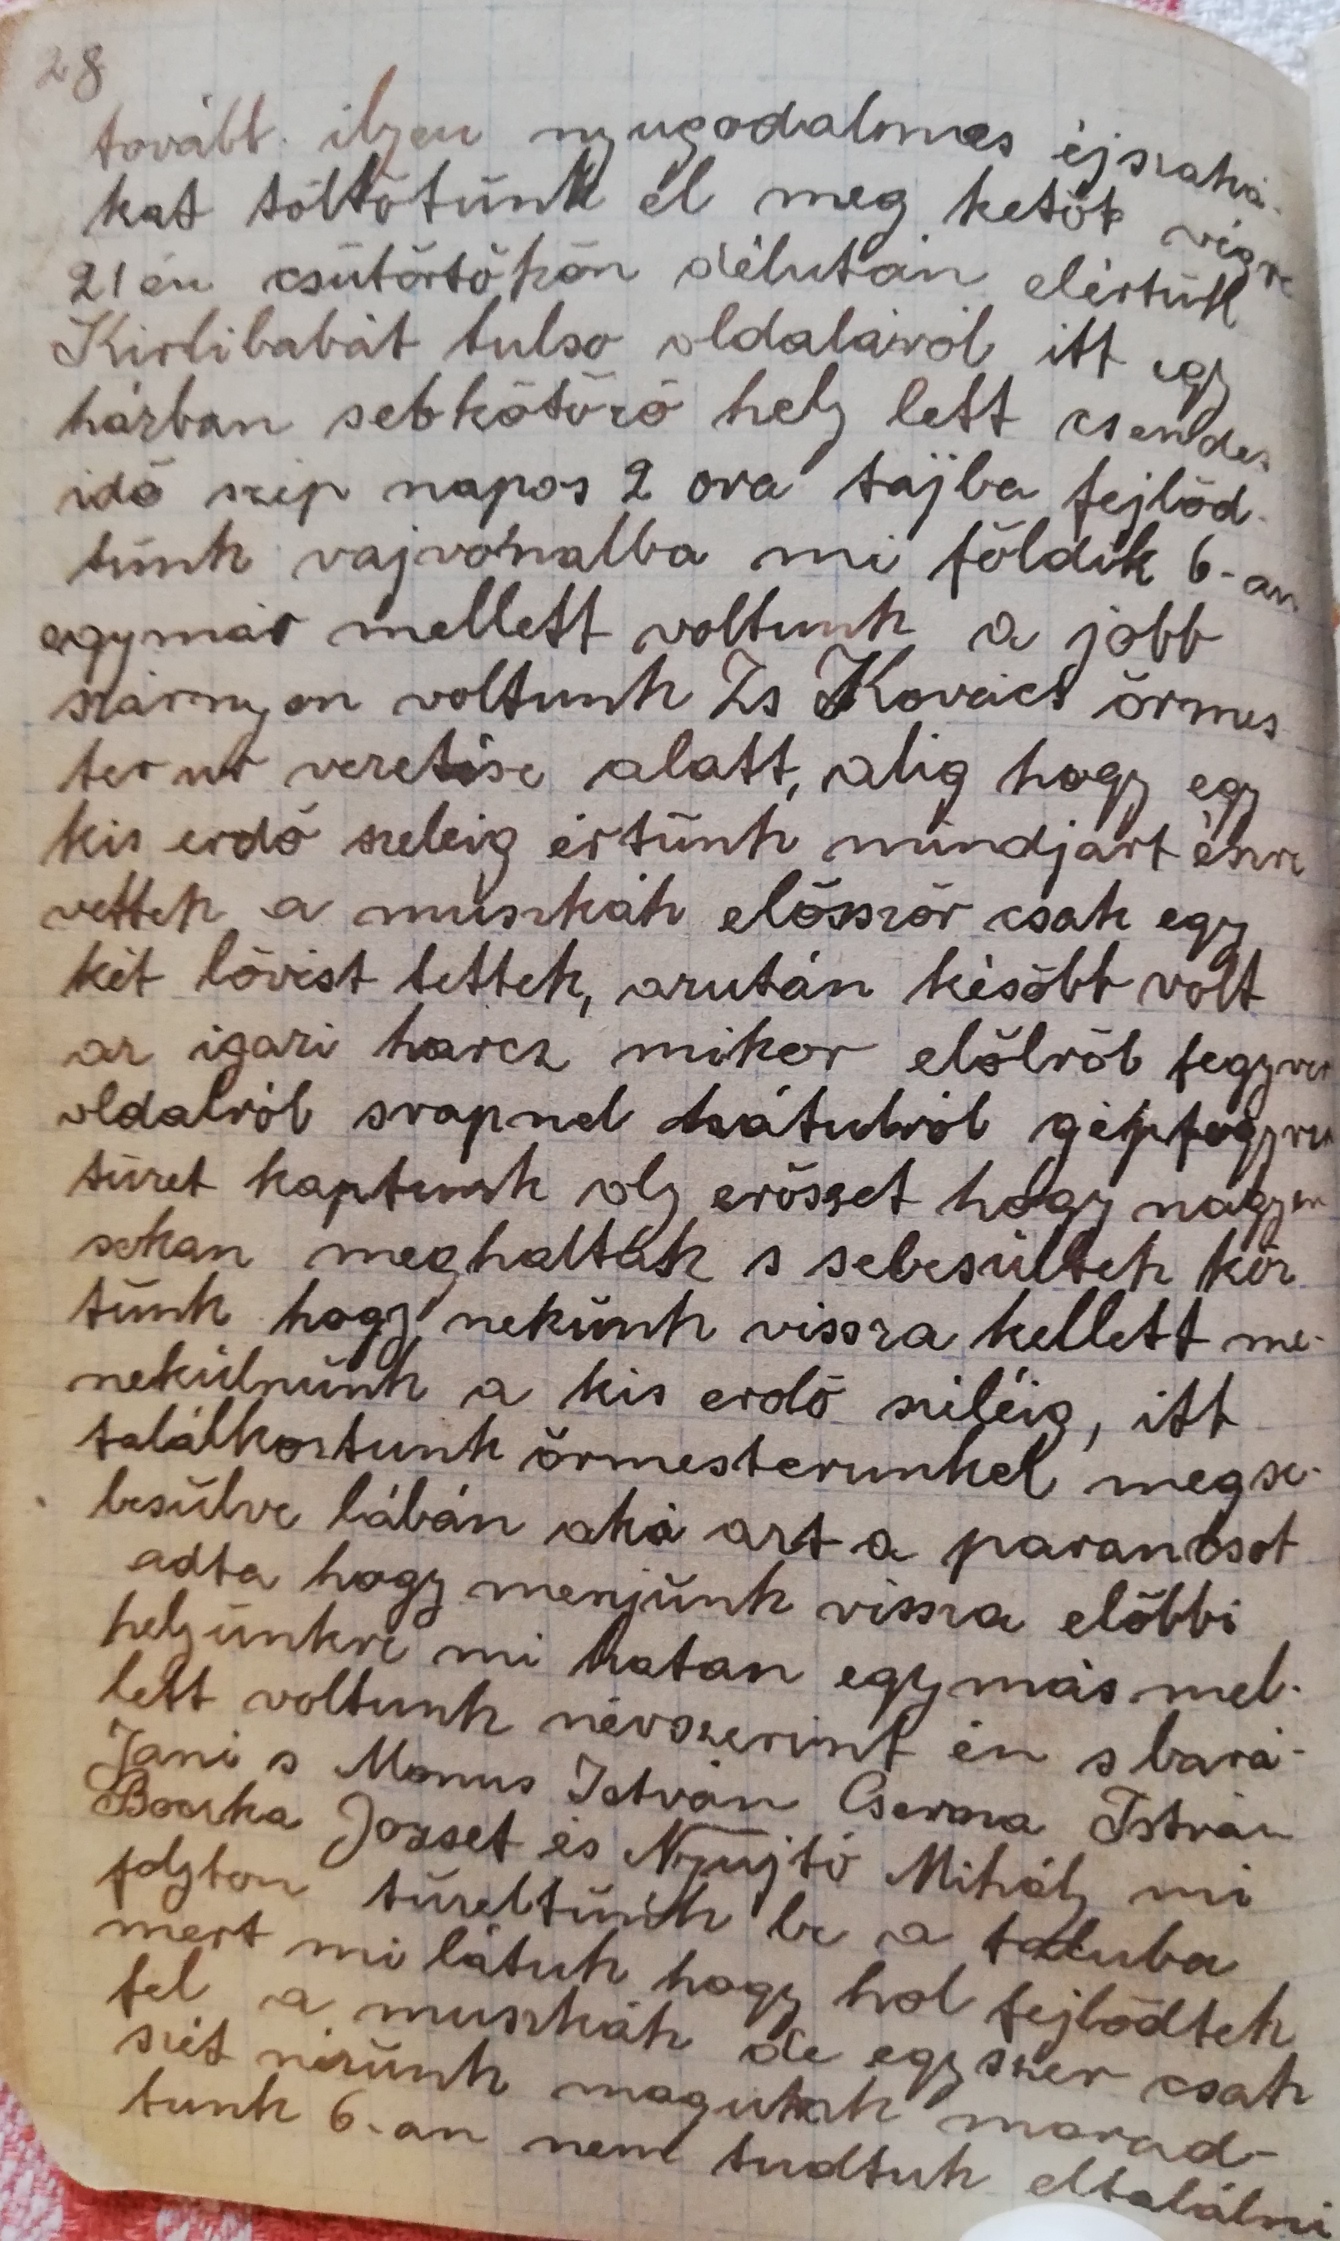 28
továbt. ilyen nyugodalmas éjszaká-
kat töltötünk el meg ketöt végre
21 én csütörtökön délután elértük
Kirlibabát tulso oldaláról itt egy
házban sebkötöző hely lett csendes
idő szép napos 2 ora tájba fejlöd-
tünk rajvonalba mi földik 6-an
egymás mellett voltunk a jobb
szárnyon voltunk Zs Kovács őrmes
ter ur vezetése alatt, alig hogy egy
kis erdő szeleig értünk mindjárt észre
vettek a muszkák elösször csak egy
két lövést tettek, azután később volt
az igazi harcz mikor előlröl fegyver
oldalról srapnel hátulról gépfegyver
tüzet kaptunk oly erösset hogy nagyon
sokan meghaltak s sebesültek köz
tünk hogy nekünk vissza kellett me-
nekülnünk a kis erdő széléig, itt
találkoztunk örmesterunkel megse-
besülve lábán aka azt a parancsot
adta hogy menjünk vissza előbbi
helyünkre mi hatan egymás mel-
lett voltunk névszerint én s bará-
Jani s Monus István Cserna István
Bocska Jozset és Nyújtó Mihály mi
folyton tüzeltünk be a taluba
mert mi látuk hogy hol fejlödtek
fel a muszkák de egyszer csak
szét nézünk magunk marad-
tunk 6-an nem tudtuk eltalálni